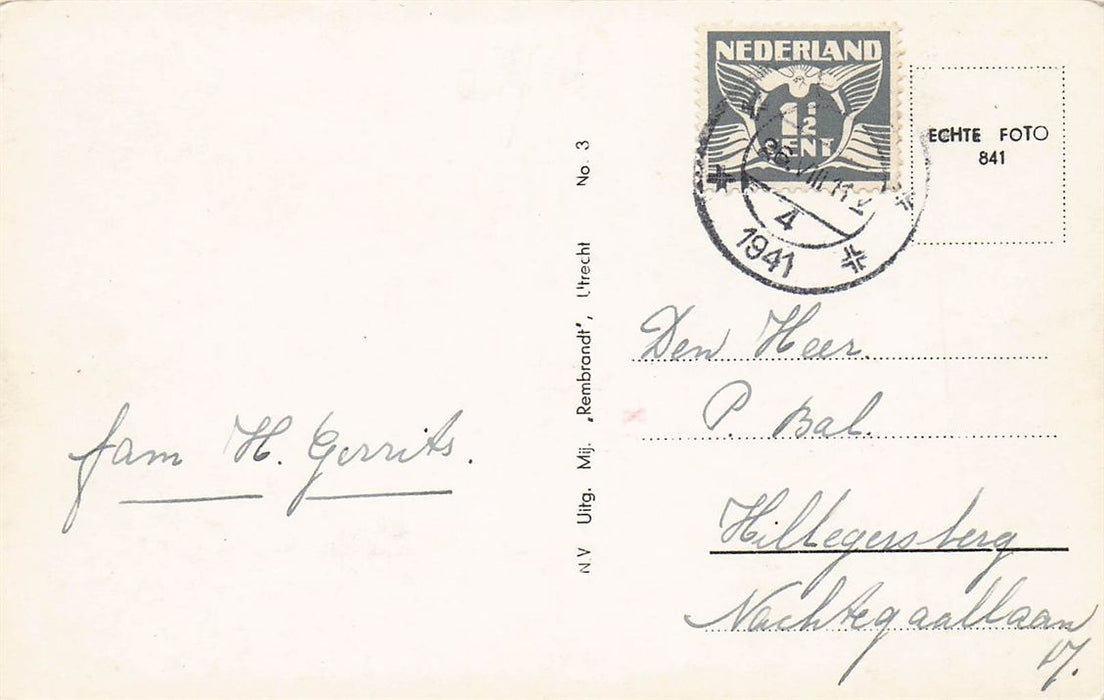 NEDERLAND
1½
CENT
26.VIII.11 V
4
1941
ECHTE FOTO
841
No. 3
N.V Uitg. Mij. „Rembrandt", Utrecht
Den Heer.
P. Bal.
Hillegersberg
Nachtegaallaan
17.
fam H. Gerrits.